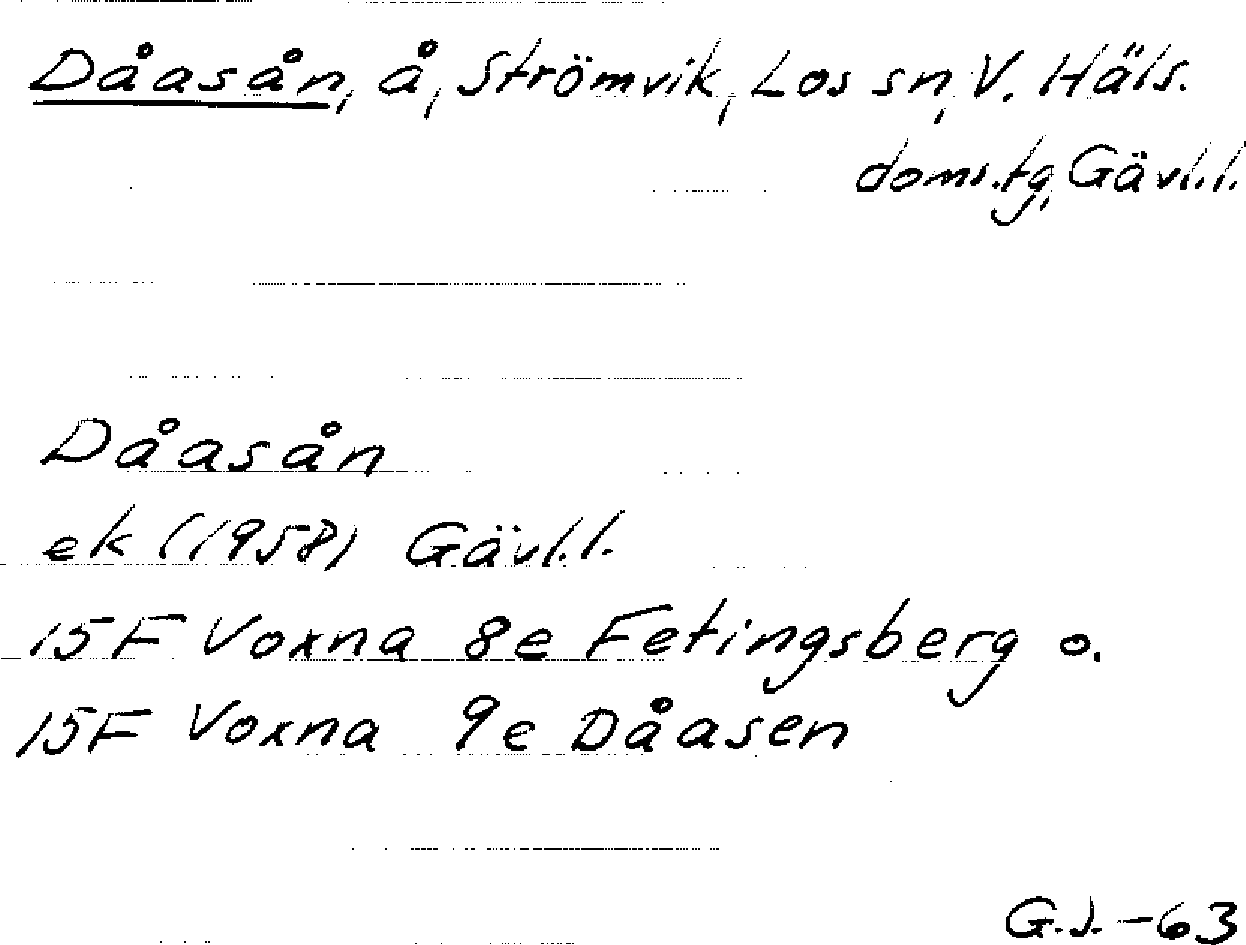 Dåasån, å, Strömvik, Los sn, V. Häls.
doms.tg, Gävl.l.
Dåasån
ek (1958) Gävl.l.
15F Voxna 8e Fetingsberg o.
15F Voxna 9e Dåasen
G.J. -63